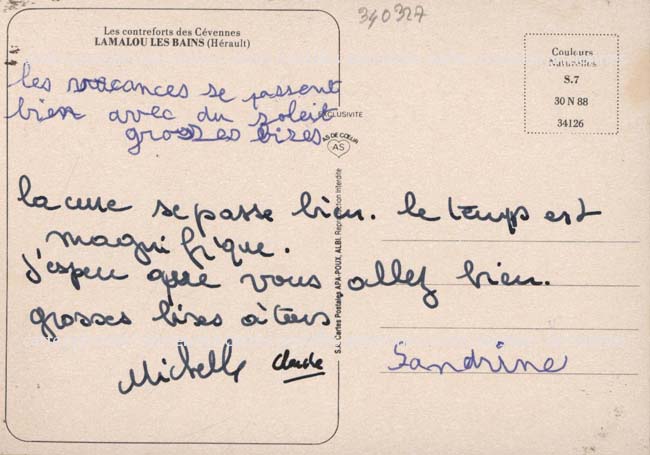 340327
Les contreforts des Cévennes
LAMALOU LES BAINS (Hérault)
Couleurs
Naturelles
S.7
30 N 88
34126
les vacances se passent
bien avec du soleil
grosses bises
EXCLUSIVITE
AS DE CŒUR
AS
S.L. Cartes Postales APA-POUX, ALBI. Reproduction Interdite
la cure se passe bien. le temps est
magnifique.
J'espere que vous allez bien.
grosses bises à tous
Michelle Claude
Sandrine